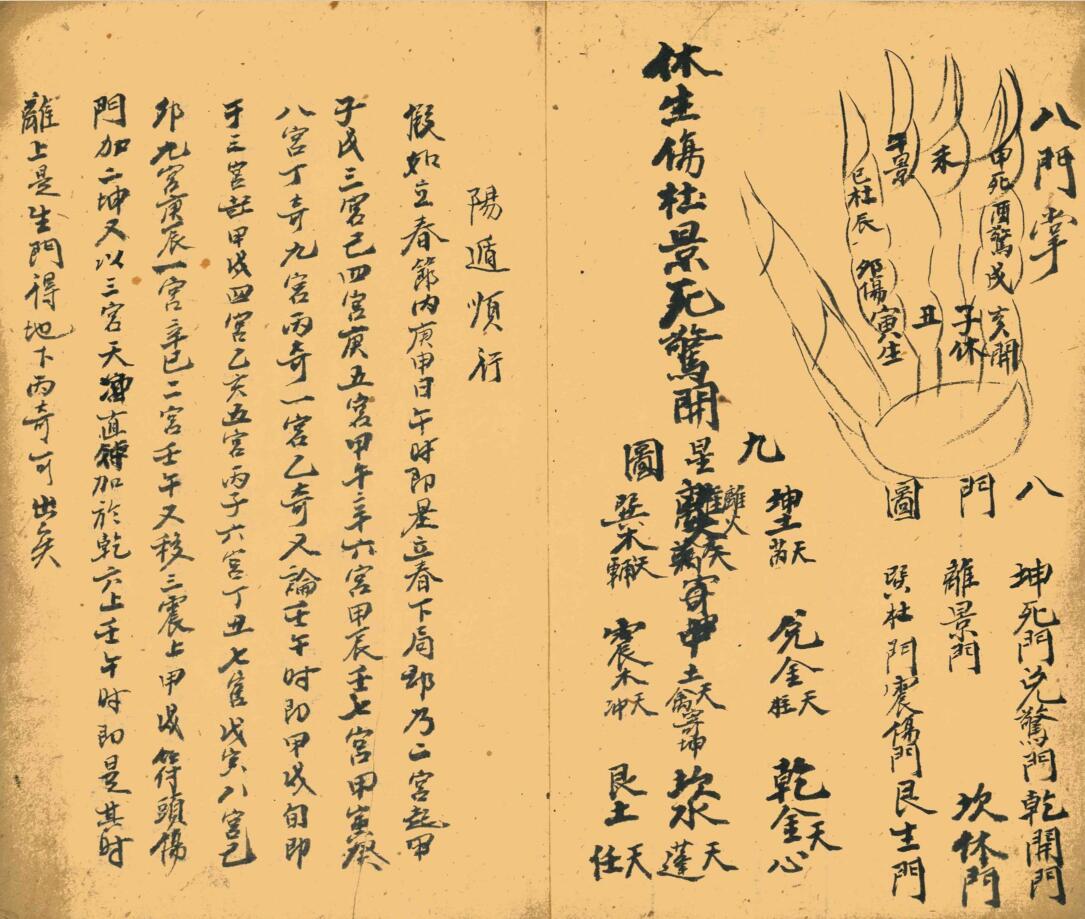 八門掌
申死酉驚戌
亥開
未
子休
午景
丑
巳杜辰
卯傷寅生
八門圖
坤死門兌驚門乾開門
離景門
坎休門
巽杜門震傷門艮生門
休生傷杜景死驚開
九星圖
坤土天芮
兌金天柱
乾金天心
離火
寄中土天禽寄坤
坎水天蓬
巽木天輔
震木天冲
艮土天任
陽遁順行
假如立春節内庚申日午時即是立春下局部乃二宮起甲
子戊三宮己四宮庚五宮甲午辛六宮甲辰壬七宮甲寅癸
八宮丁奇九宮丙奇一宮乙奇又論壬午時即甲戌旬即
于三宮起甲戌四宮乙亥五宮丙子六宮丁丑七宮戊寅八宮己
卯九宮庚辰一宮辛巳二宮壬午又移三震上甲戌符頭傷
門加二坤又以三宮天冲直符加於乾六上壬午时即是其时
離上是生門得地下丙奇可出矣